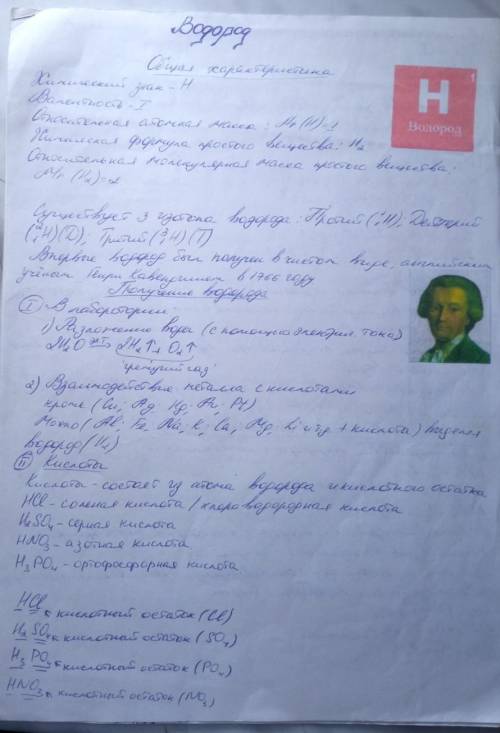 Водород
Общая характеристика
Химический знак - H
Валентность - I
Относительная атомная масса: Ar (H)=1
Химическая формула простого вещества: H₂
Относительная молекулярная масса простого вещества:
Mr (H₂)=2
H
1
Водород
Существует 3 изотопа водорода: Протий (¹₁H), Дейтерий
(²₁H)(D); Тритий (³₁H)(T)
Впервые водород был получен в чистом виде, английским
учёным Генри Кавендишем в 1766 году
Получение водорода
I В лаборатории
1) Разложение воды (с помощью электрич. тока)
2H₂O 2H₂↑ + O₂↑
"гремучий газ"
2) Взаимодействие металла с кислотами
кроме (Cu; Ag; Hg; Au; Pt)
Можно (Al; Fe; Na; K; Ca; Mg; Li и т.д + кислоты)
водород (H₂)
II Кислоты
Кислоты - состоят из атома водорода и кислотного остатка
HCl - соляная кислота / хлороводородная кислота
H₂SO₄ - серная кислота
HNO₃ - азотная кислота
H₃PO₄ - ортофосфорная кислота
HCl ← кислотный остаток (Cl)
H₂SO₄ ← кислотный остаток (SO₄)
H₃PO₄ ← кислотный остаток (PO₄)
HNO₃ ← кислотный остаток (NO₃)